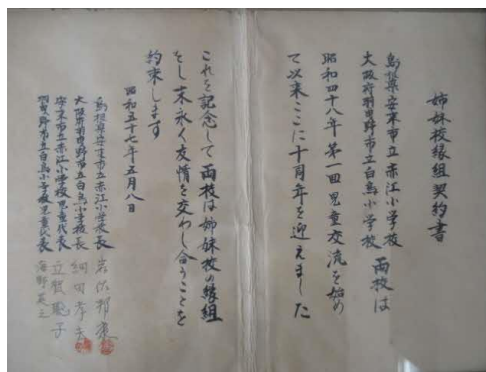 姉妹校縁組契約書
島根県安来市立赤江小学校
大阪府羽曳野市立白鳥小学校
両校は
昭和四十八年第一回児童交流を始め
て以来ここに十周年を迎えました
これを記念して両校は姉妹校の縁組
をし末永く友情を交わし合うことを
約束します
昭和五十七年五月八日
島根県安来市立赤江小学校長
大阪府羽曳野市立白鳥小学校長 細田孝夫
安来市立赤江小学校児童代表 立脇聡子
羽曳野市立白鳥小学校児童代表 海野英之